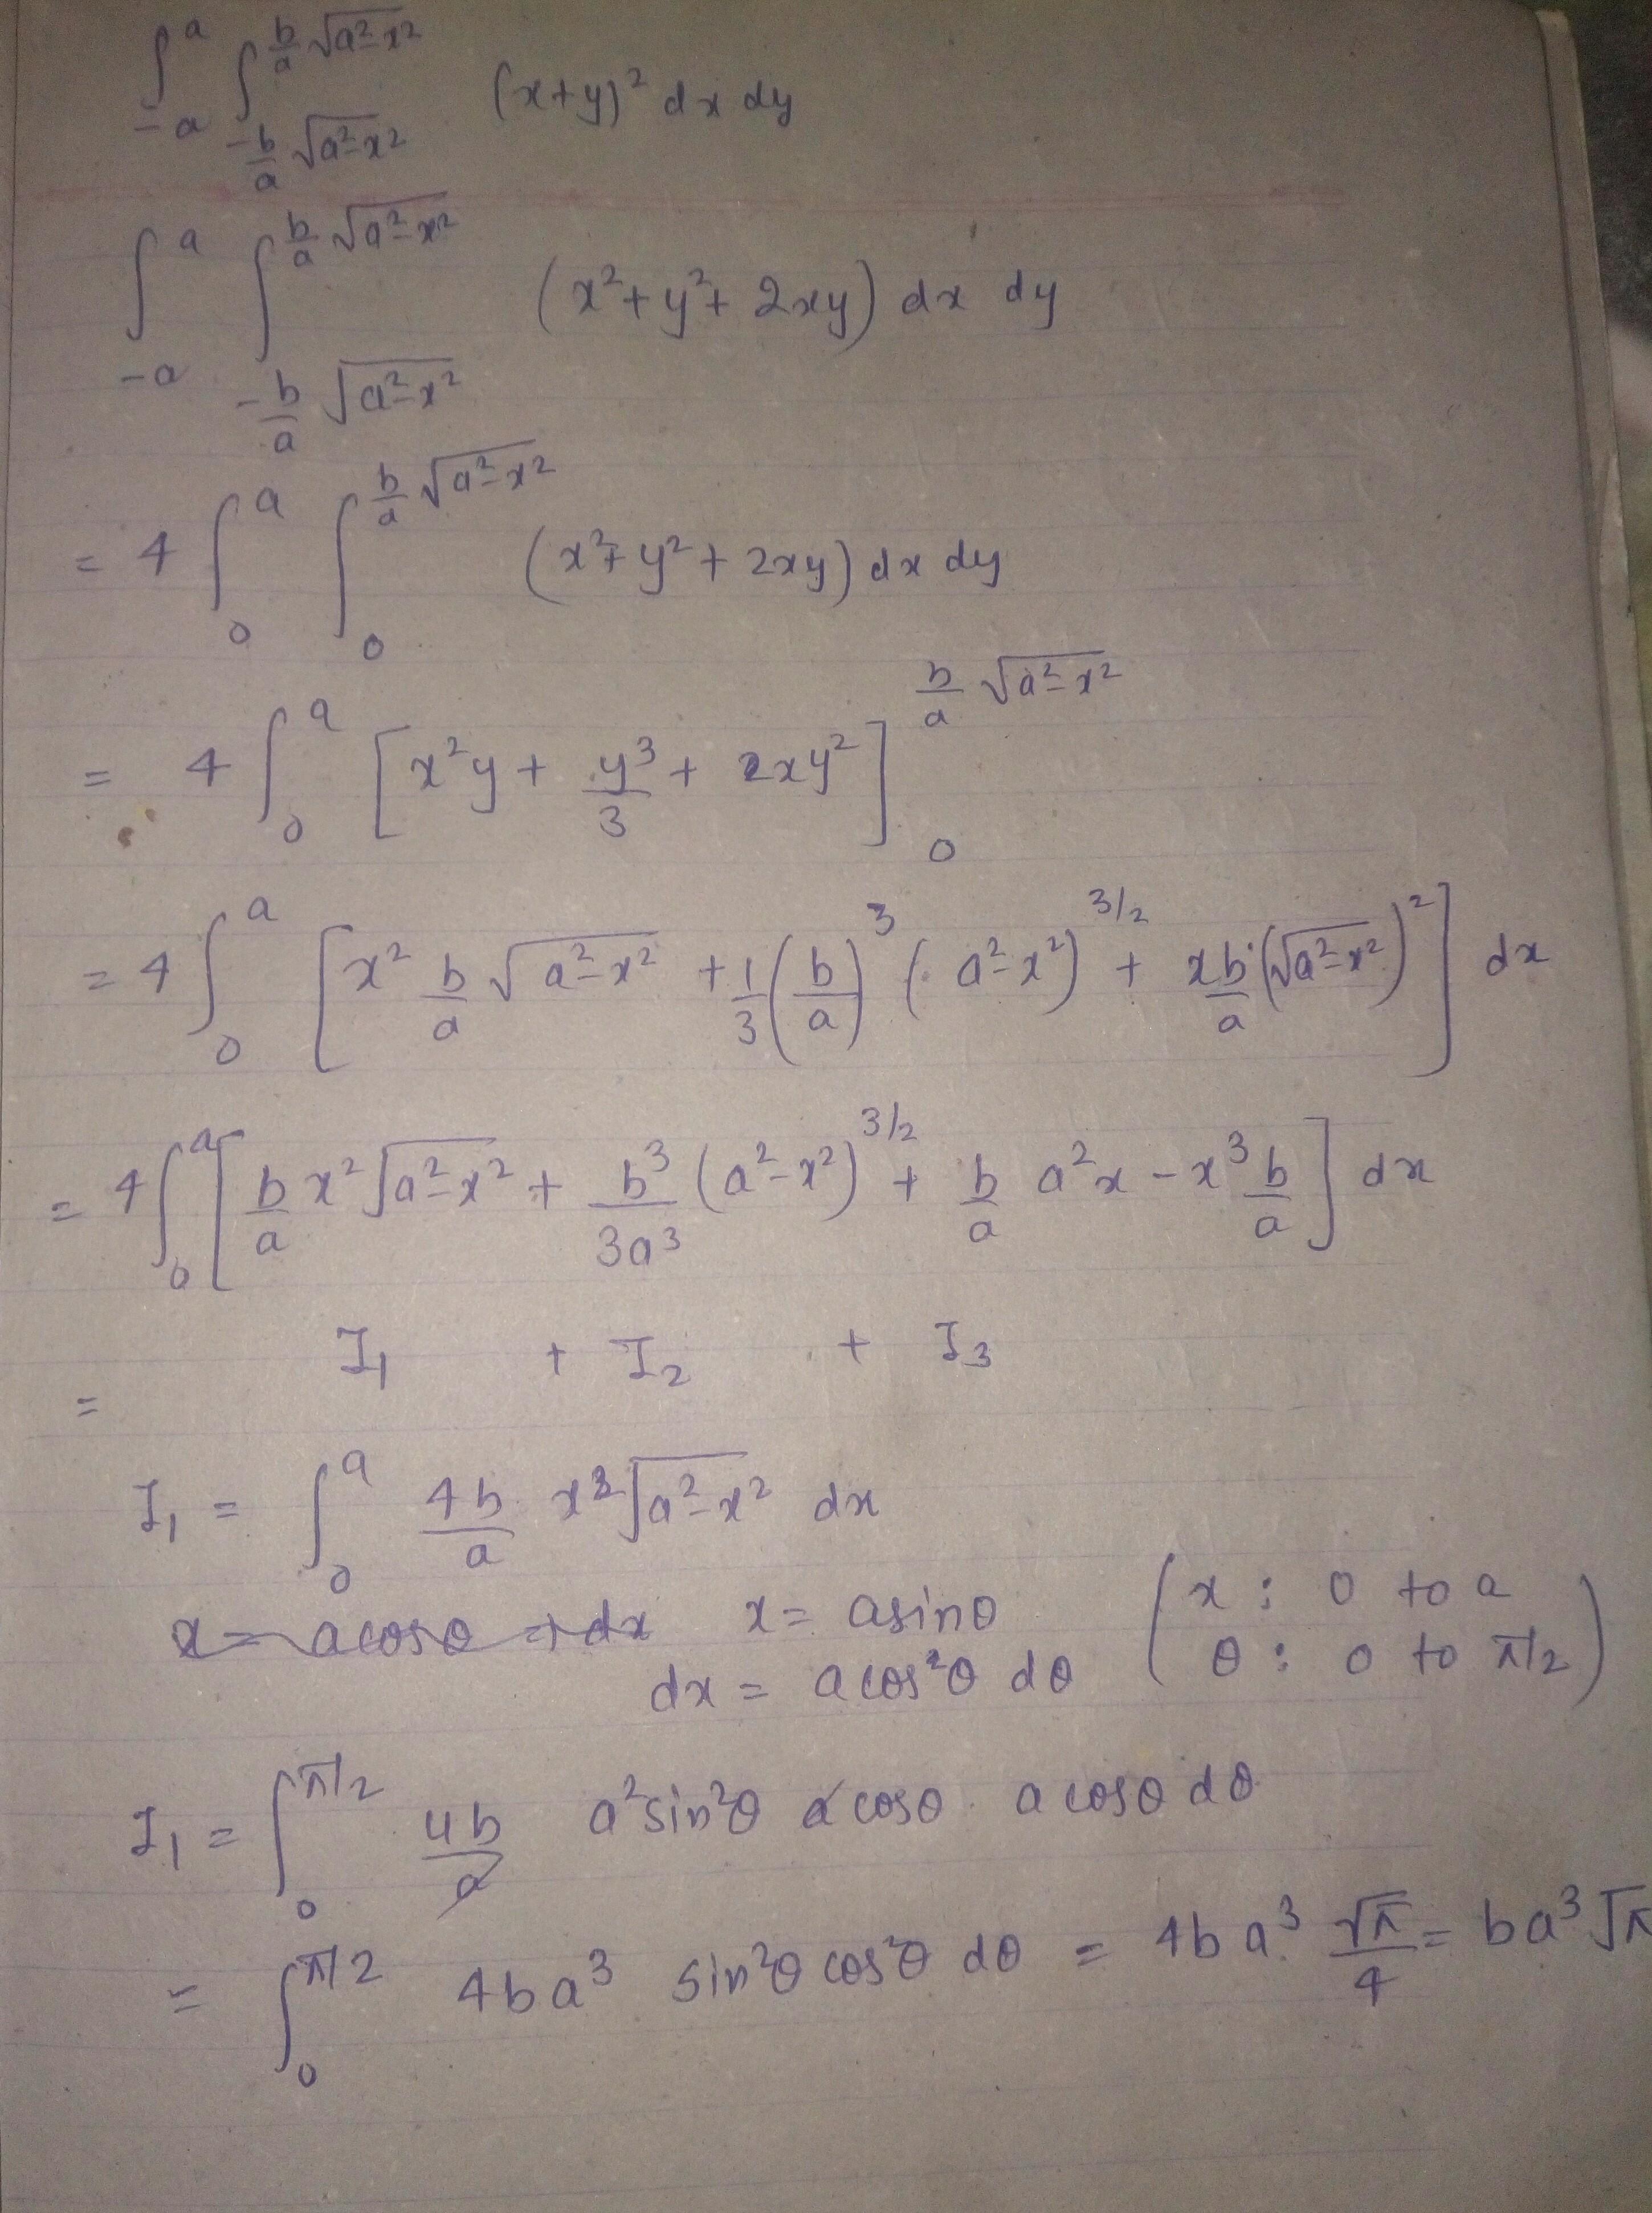 ∫_{-a}^{a} ∫_{-b/a √(a²-x²)}^{b/a √(a²-x²)} (x+y)² dx dy
∫_{-a}^{a} ∫_{-b/a √(a²-x²)}^{b/a √(a²-x²)} (x²+y²+2xy) dx dy
= 4 ∫_0^a ∫_0^{b/a √(a²-x²)} (x²+y²+2xy) dx dy
= 4 ∫_0^a [x²y + y³/3 + 2xy²]_0^{b/a √(a²-x²)}
= 4 ∫_0^a [x² b/a √(a²-x²) + 1/3 (b/a)³ (a²-x²)^{3/2} + x b/a (√(a²-x²))²] dx
= 4 ∫_0^a [b/a x² √(a²-x²) + b³/3a³ (a²-x²)^{3/2} + b/a a²x - x³ b/a] dx
= I₁ + I₂ + I₃
I₁ = ∫_0^a 4b/a x² √(a²-x²) dx
x = a cosθ → dx x = a sinθ (x : 0 to a
dx = a cos²θ dθ θ : 0 to π/2)
I₁ = ∫_0^{π/2} 4b/a a² sin²θ a cosθ . a cosθ dθ
= ∫_0^{π/2} 4ba³ sin²θ cos²θ dθ = 4ba³ √π/4 = ba³√π